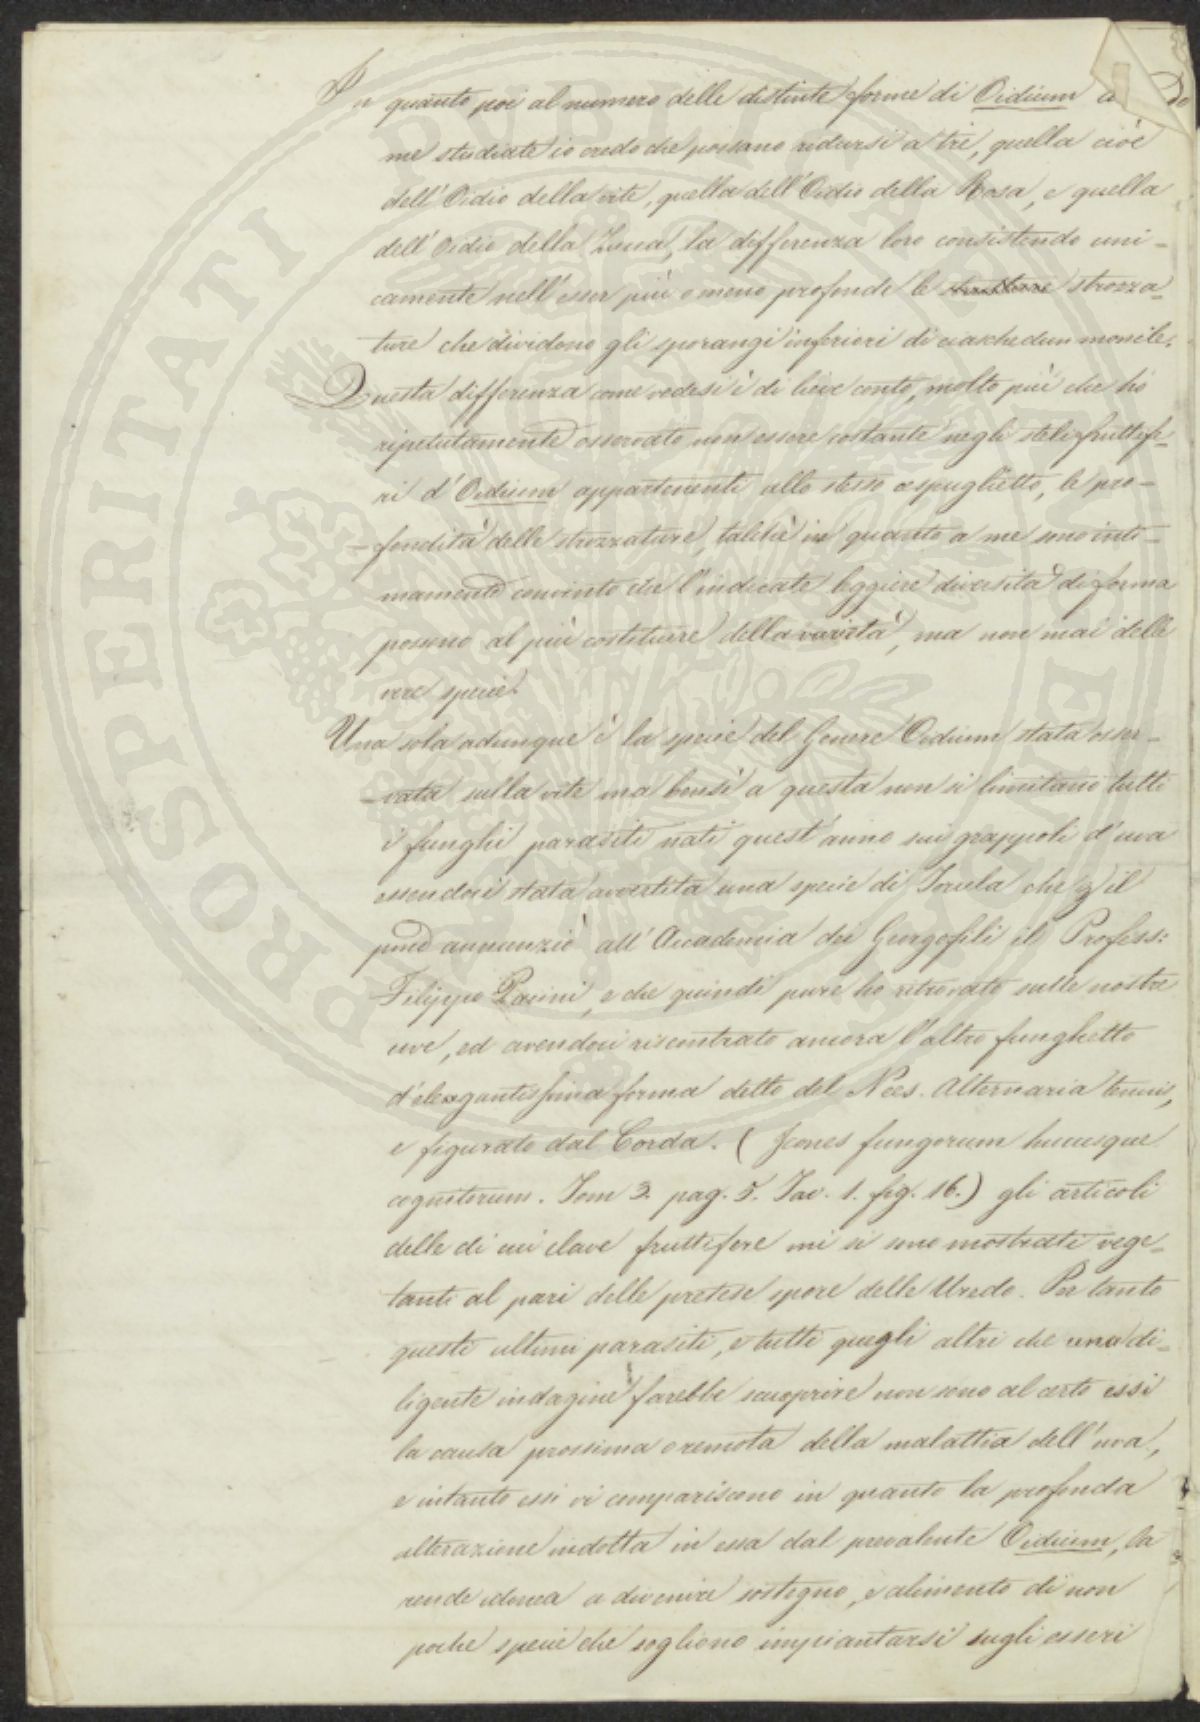 In quanto poi al numero delle distinte forme di Oidium a Do
me studiate io credo che possano ridursi a tre, quella cioè
dell' Oidio della vite, quella dell' Oidio della Rosa, e quella
dell' Oidio della Zucca, la differenza loro consistendo uni-
camente nell' esser più o meno profonde le strozza-
ture che dividono gli sporangi inferiori di ciaschedun monile.
Questa differenza come vedesi è di lieve conto, molto più che ho
ripetutamente osservato non essere costante negli steli fruttife-
ri d' Oidium appartenenti allo stesso cespuglietto, le pro-
-fondità delle strozzature, talchè in quanto a me sono inti-
mamente convinto che l' indicate leggiere diversità di forma
possono al più costituire della varietà, ma non mai delle
vere specie.
Una sola adunque è la specie del Genere Oidium stata osser-
-vata sulla vite ma bensì a questa non si limitano tutti
i funghi parasiti nati quest' anno sui grappoli d' uva
essendosi stata avvertita una specie di Torula che p il
pmo annunziò all' Accademia dei Gorgofili il Profess:
Filippo Parini, e che quindi pure ho ritrovato sulle nostre
uve, ed avendoci riscontrato ancora l' altro funghetto
d' elegantissima forma detto del Nees. Alternaria tenuis,
e figurato dal Corda. ( Icones fungorum hucusque
cognitorum. Tom 3. pag. 5. Tav. 1. fig. 16.) gli articoli
delle di cui clave fruttifere mi si sono mostrati vege-
tanti al pari delle pretese spore delle Uredo. Per tanto
questi ultimi parasiti, e tutti quegli altri che una di-
ligente indagine farebbe scuoprire non sono al certo essi
la causa prossima o remota della malattia dell' uva,
e intanto essi vi compariscono in quanto la profonda
alterazione indotta in essa dal prevalente Oidium, la
rende idonea a divenire sostegno, e alimento di non
poche specie che sogliono impiantarsi sugli esseri
PROSPERITATI PUBLICAE